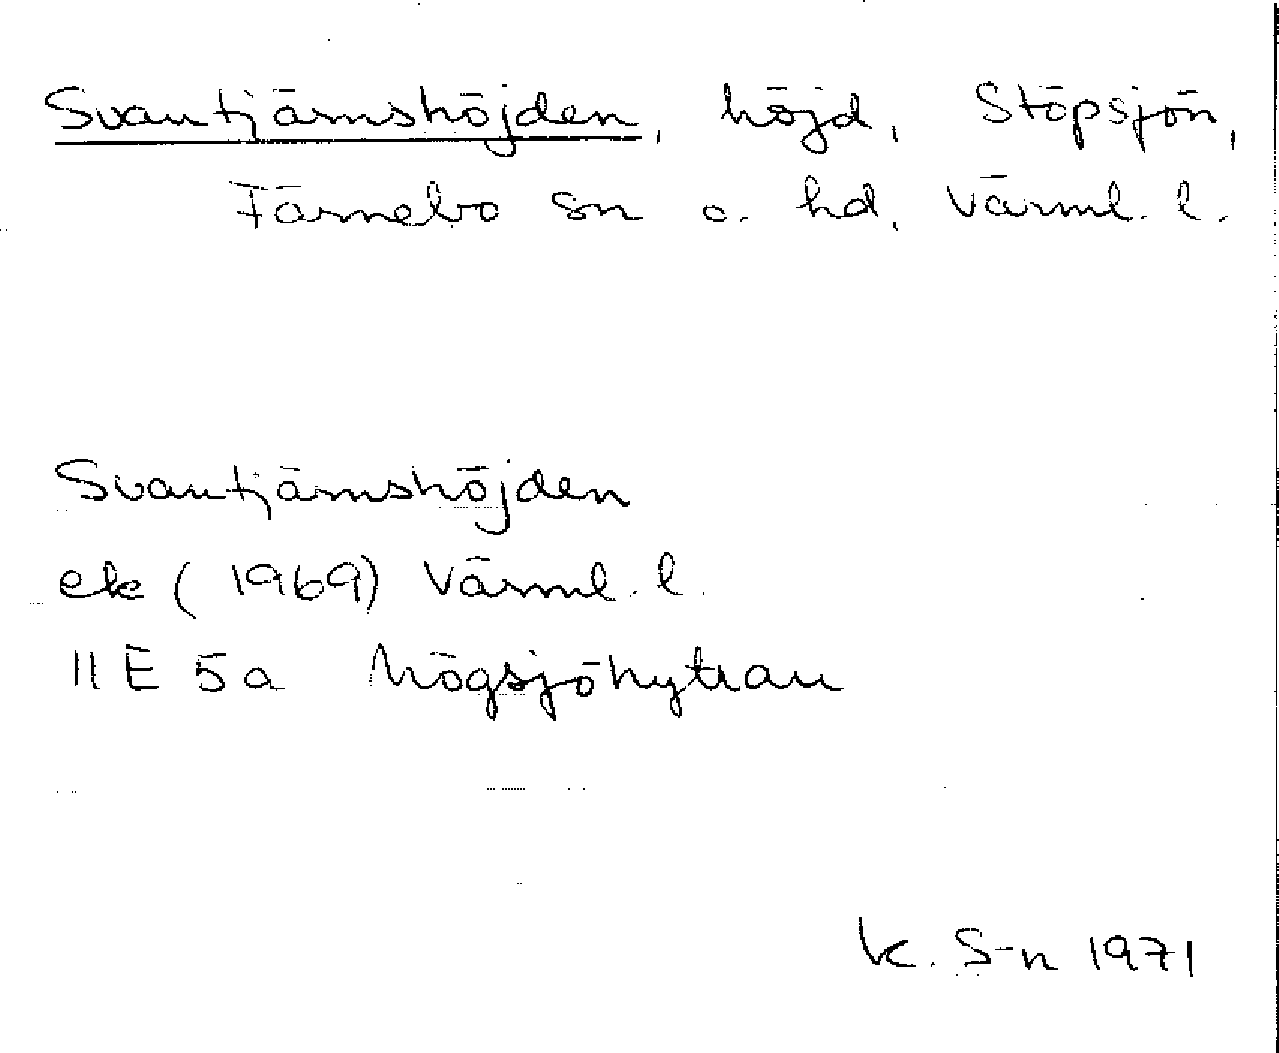 Svantjärnshöjden, höjd, Stöpsjön,
Färnebo sn o. hd, Värml. l.
Svantjärnshöjden
ek (1969) Värml. l.
11 E 5a Högsjöhyttan
K. S-n 1971